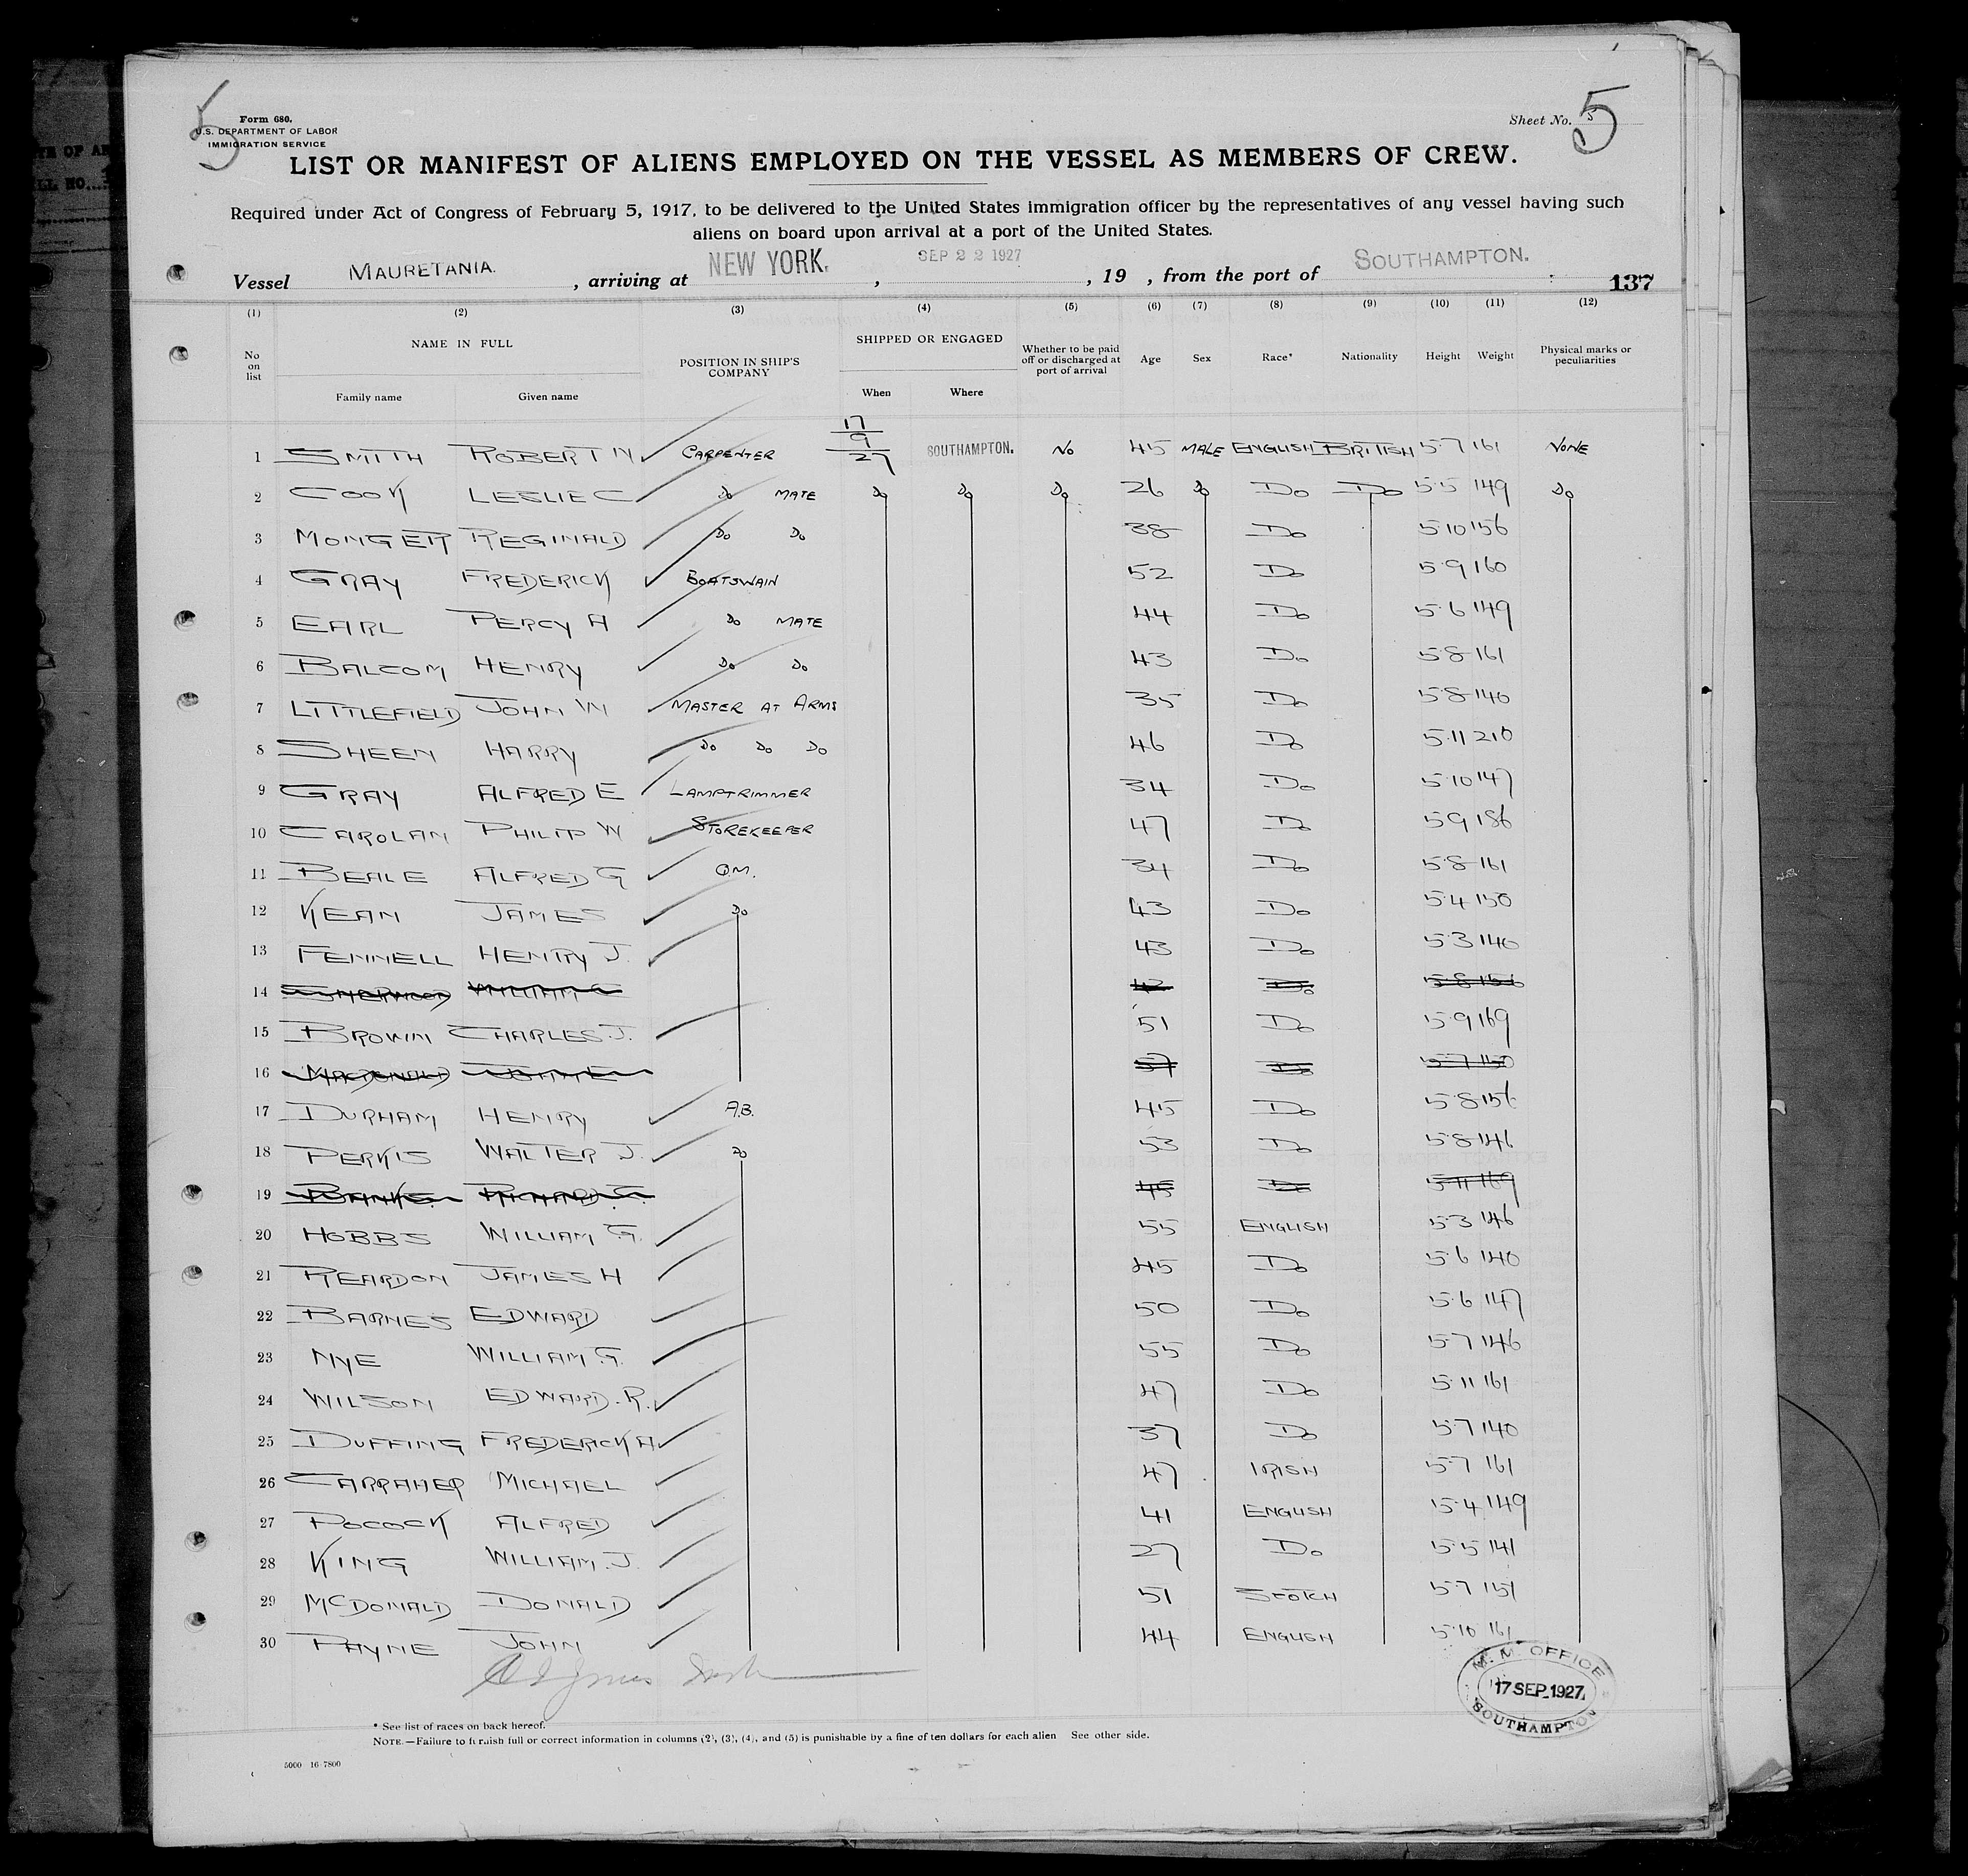 5
Form 680.
U.S. DEPARTMENT OF LABOR
IMMIGRATION SERVICE
Sheet No. 5
5
LIST OR MANIFEST OF ALIENS EMPLOYED ON THE VESSEL AS MEMBERS OF CREW.
Required under Act of Congress of February 5, 1917, to be delivered to the United States immigration officer by the representatives of any vessel having such
aliens on board upon arrival at a port of the United States.
Vessel MAURETANIA. , arriving at NEW YORK. , SEP 22 1927 , 19 , from the port of SOUTHAMPTON. 137
(1) (2) (3) (4) (5) (6) (7) (8) (9) (10) (11) (12)
No on list NAME IN FULL POSITION IN SHIP'S COMPANY SHIPPED OR ENGAGED Whether to be paid off or discharged at port of arrival Age Sex Race* Nationality Height Weight Physical marks or peculiarities
Family name Given name When Where
1 SMITH ROBERT W CARPENTER 17/9/27 SOUTHAMPTON. NO 45 MALE ENGLISH BRITISH 5·7 161 NONE
2 COOK LESLIE C DO MATE DO DO DO 26 DO DO DO 5·5 149 DO
3 MONGER REGINALD DO DO 38 DO 5·10 156
4 GRAY FREDERICK BOATSWAIN 52 DO 5·9 160
5 EARL PERCY A DO MATE 44 DO 5·6 149
6 BALCOM HENRY DO DO 43 DO 5·8 161
7 LITTLEFIELD JOHN W MASTER AT ARMS 35 DO 5·8 140
8 SHEEN HARRY DO DO DO 46 DO 5·11 210
9 GRAY ALFRED E LAMPTRIMMER 34 DO 5·10 147
10 CAROLAN PHILIP W STOREKEEPER 47 DO 5·9 186
11 BEALE ALFRED G Q.M. 34 DO 5·8 161
12 KEAN JAMES DO 43 DO 5·4 150
13 FENNELL HENRY J. 43 DO 5·3 140
14 WILLIAM DO 5·8
15 BROWN CHARLES. J. 51 DO 5·9 169
16 MACDONALD 57 DO 5·7 150
17 DURHAM HENRY A.B. 45 DO 5·8 156
18 PERKIS WALTER J. DO 53 DO 5·8 146
19 BANKS. RICHARD. 45 DO 5·11 169
20 HOBBS WILLIAM G. 55 ENGLISH 5·3 146
21 REARDON JAMES H 45 DO 5·6 140
22 BARNES EDWARD 50 DO 5·6 147
23 NYE WILLIAM G. 55 DO 5·7 146
24 WILSON EDWARD. R. 47 DO 5·11 161
25 DUFFING FREDERICK A 37 DO 5·7 140
26 CARRAHER MICHAEL 47 IRISH 5·7 161
27 POCOCK ALFRED 41 ENGLISH 5·4 149
28 KING WILLIAM. J. 27 DO 5·5 141
29 MCDONALD DONALD 51 SCOTCH 5·7 151
30 PAYNE JOHN 44 ENGLISH 5·10 161
M. M. OFFICE
17 SEP. 1927
SOUTHAMPTON
* See list of races on back hereof.
NOTE.—Failure to furnish full or correct information in columns (2), (3), (4), and (5) is punishable by a fine of ten dollars for each alien See other side.
5000 16-7800